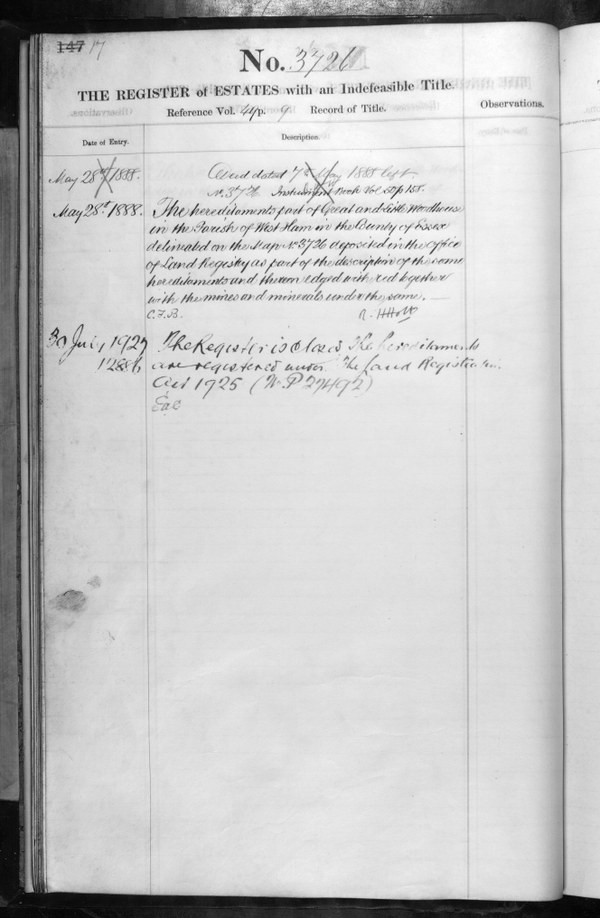 147 17
No. 3726
THE REGISTER of ESTATES with an Indefeasible Title.
Reference Vol. 44 p. 9 Record of Title.
Observations.
Date of Entry.
Description.
May 28th 1888. Deed dated 7th May 1888
No. 3726 Instrument Book Vol. 50 p 158.
May 28th 1888. The hereditaments part of Great and Little Woodhouse
in the Parish of West Ham in the County of Essex
delineated on the Map No. 3726 deposited in the Office
of Land Registry as part of the description of the same
hereditaments and thereon edged with red together
with the mines and minerals under the same.
C.F.B.
30 July 1927 The Register is closed The hereditaments
are registered under The Land Registration
Act 1925 (